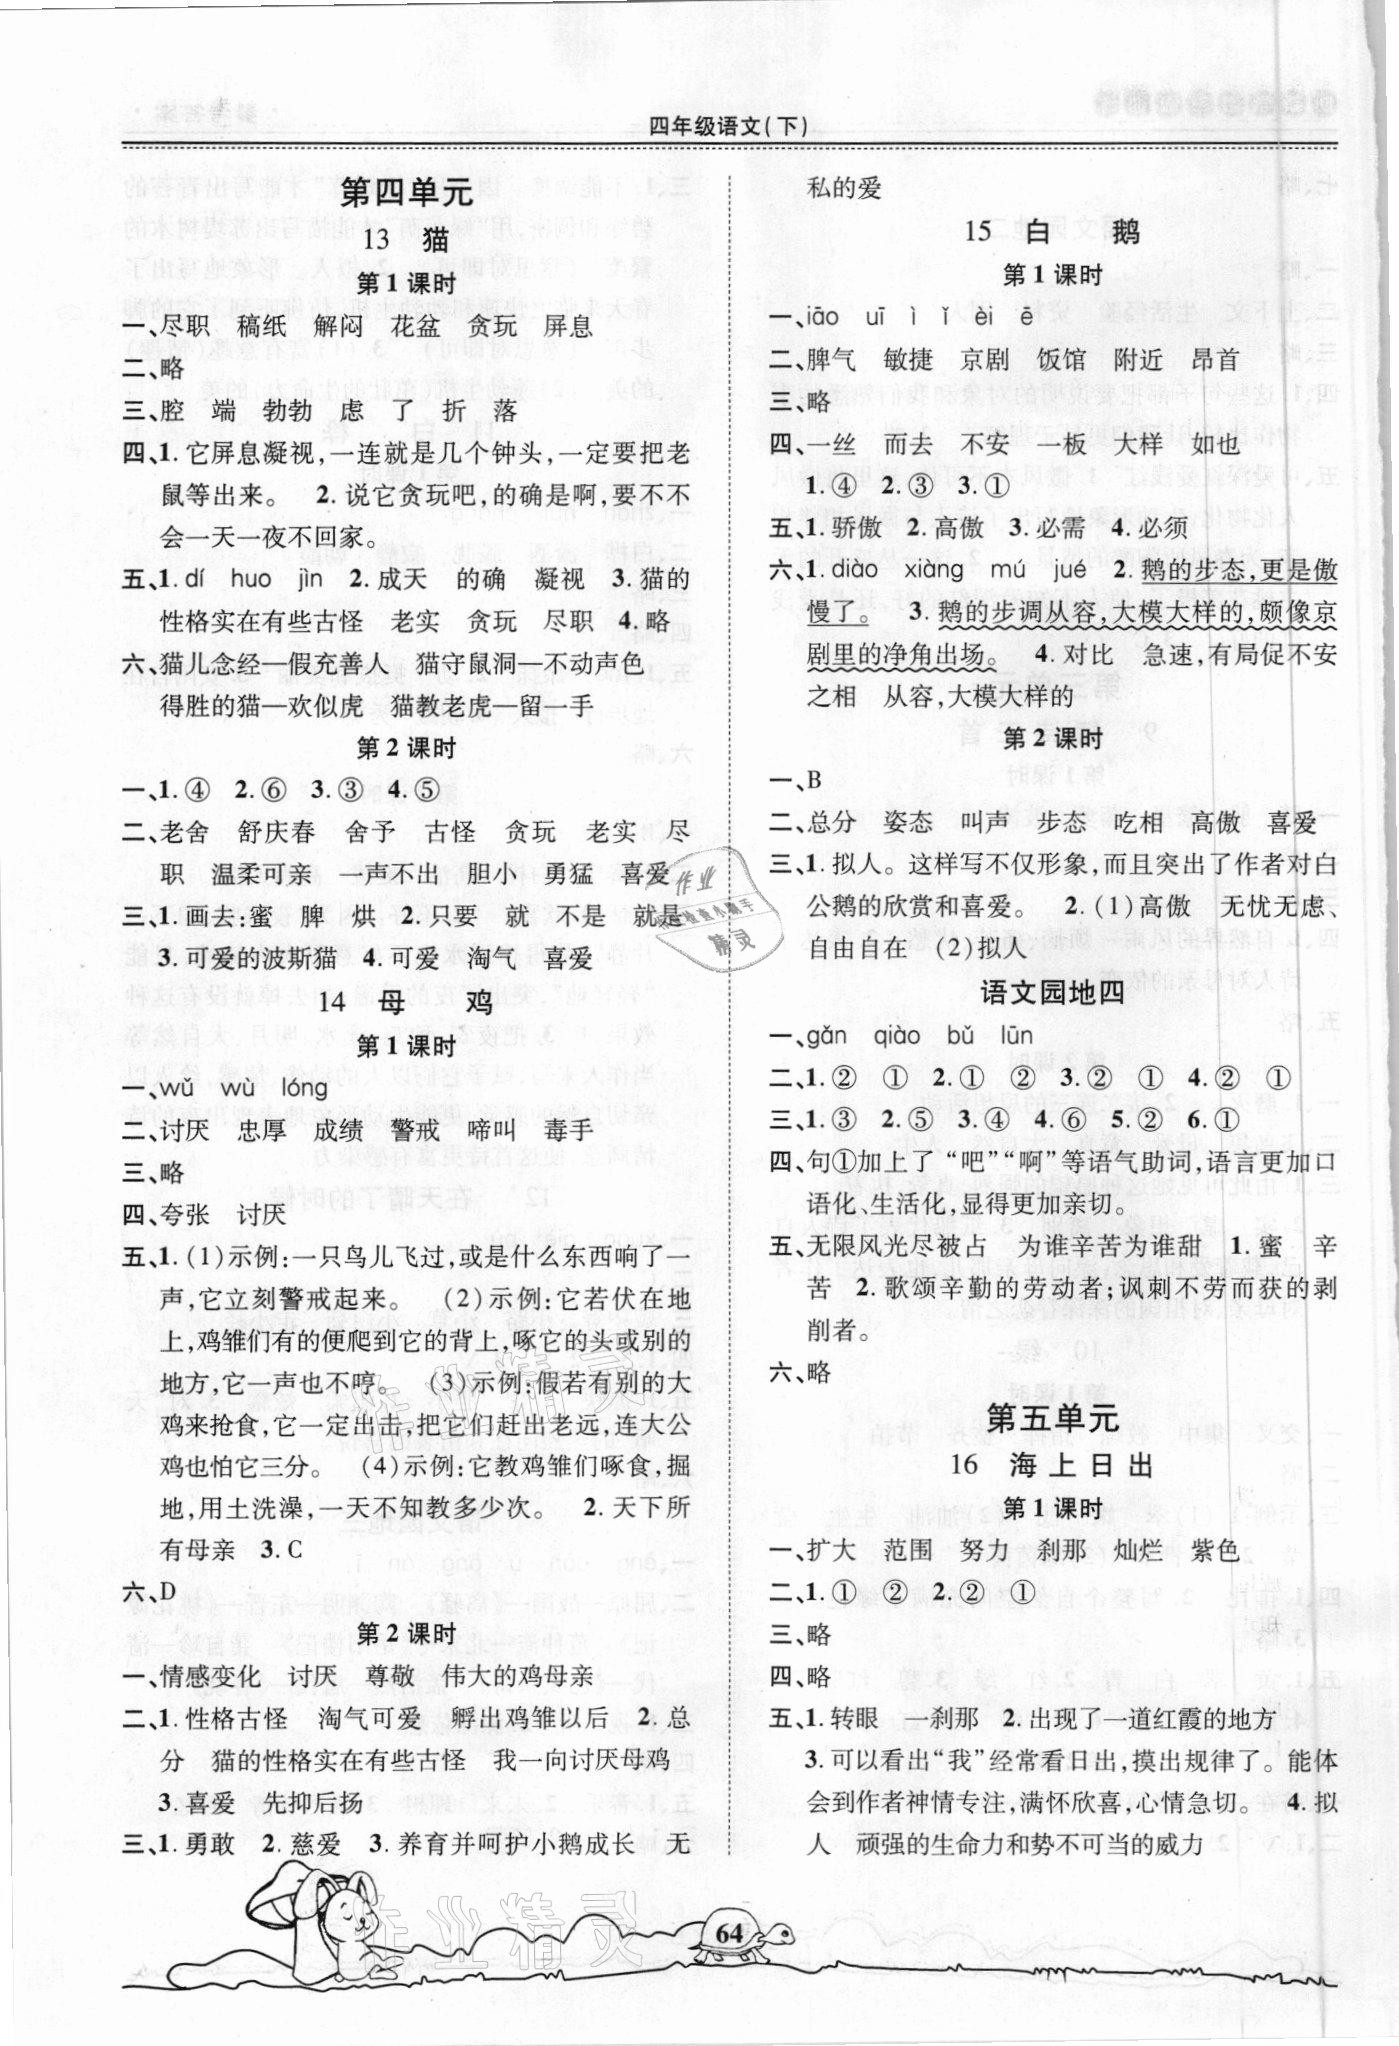 四年级语文(下)
第四单元
13 猫
第1课时
一、尽职 稿纸 解闷 花盆 贪玩 屏息
二、略
三、腔 端 勃勃 虑 了 折 落
四、1.它屏息凝视,一连就是几个钟头,一定要把老
鼠等出来。 2.说它贪玩吧,的确是啊,要不不
会一天一夜不回家。
五、1.dí huo jìn 2.成天 的确 凝视 3.猫的
性格实在有些古怪 老实 贪玩 尽职 4.略
六、猫儿念经—假充善人 猫守鼠洞—不动声色
得胜的猫—欢似虎 猫教老虎—留一手
第2课时
一、1.④ 2.⑥ 3.③ 4.⑤
二、老舍 舒庆春 舍予 古怪 贪玩 老实 尽
职 温柔可亲 一声不出 胆小 勇猛 喜爱
三、1.画去:蜜 脾 烘 2.只要 就 不是 就是
3.可爱的波斯猫 4.可爱 淘气 喜爱
14 母 鸡
第1课时
一、wǔ wù lóng
二、讨厌 忠厚 成绩 警戒 啼叫 毒手
三、略
四、夸张 讨厌
五、1.(1)示例:一只鸟儿飞过,或是什么东西响了一
声,它立刻警戒起来。 (2)示例:它若伏在地
上,鸡雏们有的便爬到它的背上,啄它的头或别的
地方,它一声也不哼。 (3)示例:假若有别的大
鸡来抢食,它一定出击,把它们赶出老远,连大公
鸡也怕它三分。 (4)示例:它教鸡雏们啄食,掘
地,用土洗澡,一天不知教多少次。 2.天下所
有母亲 3.C
六、D
第2课时
一、情感变化 讨厌 尊敬 伟大的鸡母亲
二、1.性格古怪 淘气可爱 孵出鸡雏以后 2.总
分 猫的性格实在有些古怪 我一向讨厌母鸡
3.喜爱 先抑后扬
三、1.勇敢 2.慈爱 3.养育并呵护小鹅成长 无
私的爱
15 白 鹅
第1课时
一、jiāo uī ì ǐ èi ē
二、脾气 敏捷 京剧 饭馆 附近 昂首
三、略
四、一丝 而去 不安 一板 大样 如也
1.④ 2.③ 3.①
五、1.骄傲 2.高傲 3.必需 4.必须
六、1.diào xiàng mú jué 2.鹅的步态,更是傲
慢了。 3.鹅的步调从容,大模大样的,颇像京
剧里的净角出场。 4.对比 急速,有局促不安
之相 从容,大模大样的
第2课时
一、B
二、总分 姿态 叫声 步态 吃相 高傲 喜爱
三、1.拟人。这样写不仅形象,而且突出了作者对白
公鹅的欣赏和喜爱。 2.(1)高傲 无忧无虑、
自由自在 (2)拟人
语文园地四
一、gǎn qiào bǔ lūn
二、1.② ① 2.① ② 3.② ① 4.② ①
三、1.③ 2.⑤ 3.④ 4.⑥ 5.② 6.①
四、句①加上了“吧”“啊”等语气助词,语言更加口
语化、生活化,显得更加亲切。
五、无限风光尽被占 为谁辛苦为谁甜 1.蜜 辛
苦 2.歌颂辛勤的劳动者;讽刺不劳而获的剥
削者。
六、略
第五单元
16 海上日出
第1课时
一、扩大 范围 努力 刹那 灿烂 紫色
二、1.① ② 2.② ①
三、略
四、略
五、1.转眼 一刹那 2.出现了一道红霞的地方
3.可以看出“我”经常看日出,摸出规律了。能体
会到作者神情专注,满怀欣喜,心情急切。 4.拟
人 顽强的生命力和势不可当的威力
64